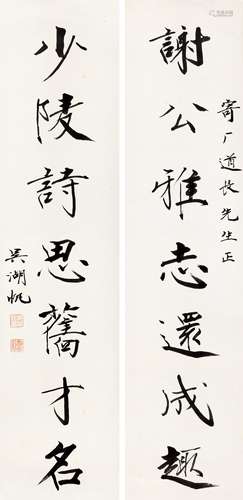 寄厂道长先生正
謝公雅志還成趣
少陵詩思舊才名
吳湖帆